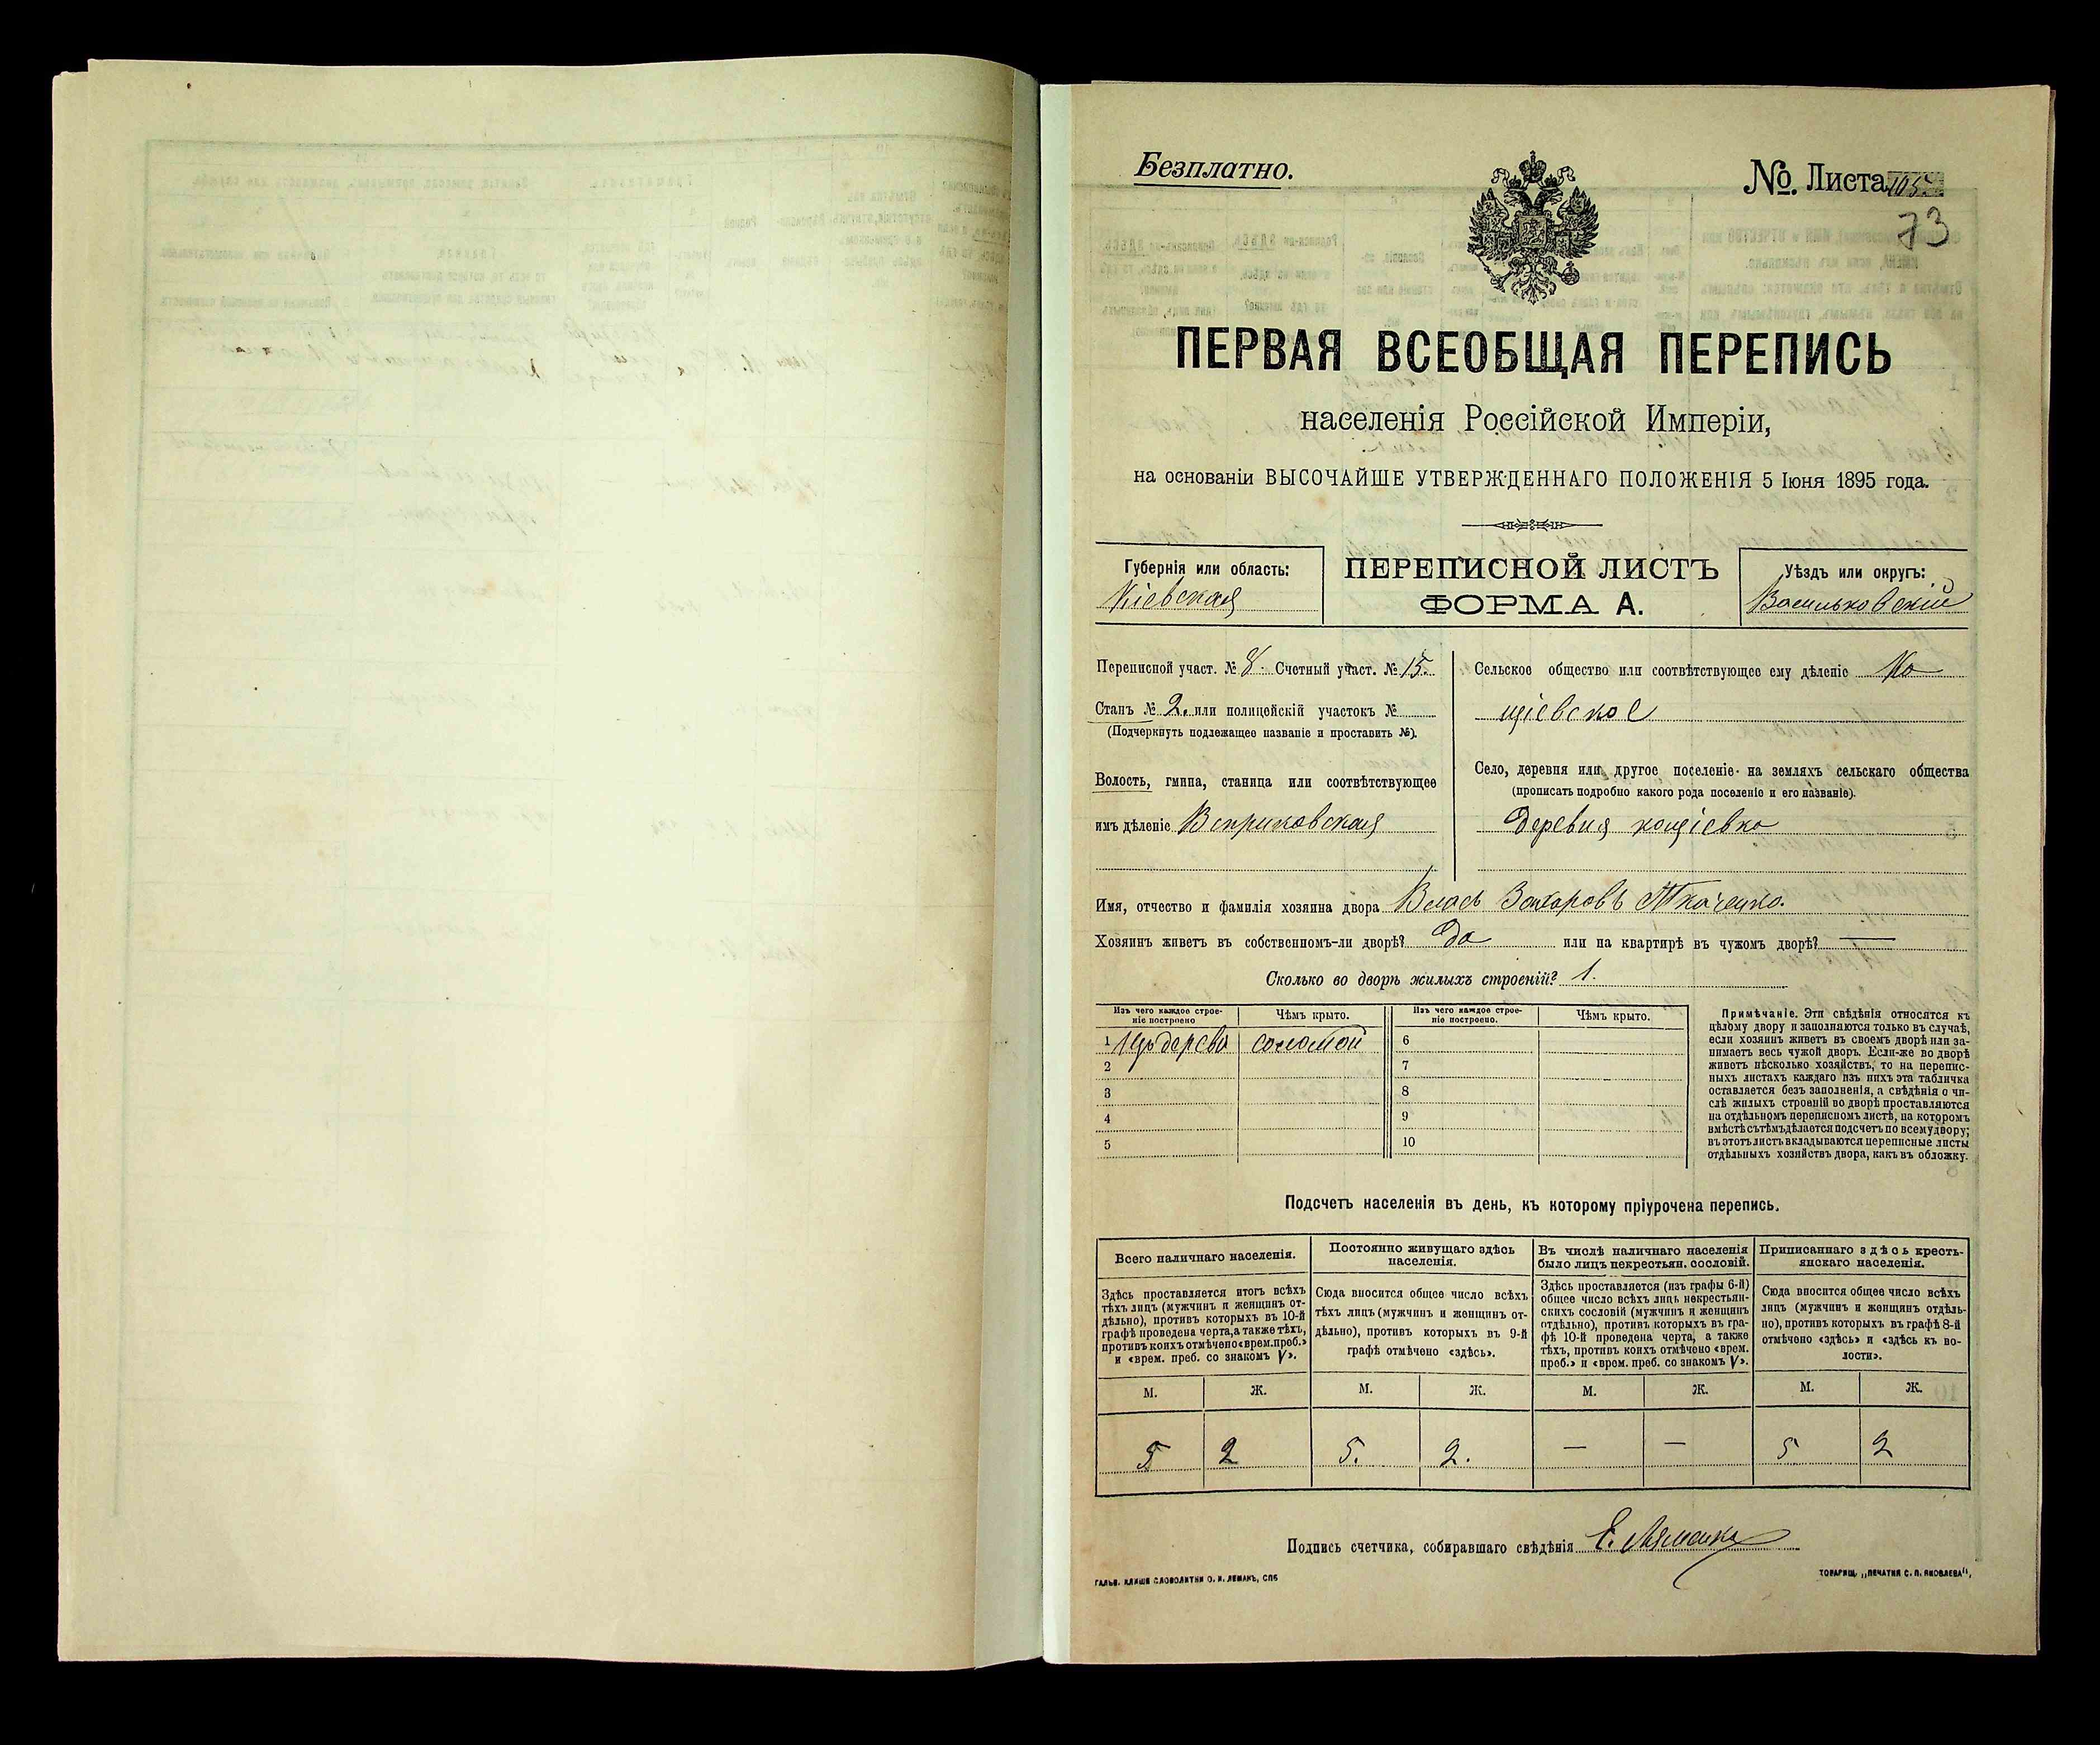 Безплатно.
№. Листа 105
73
ПЕРВАЯ ВСЕОБЩАЯ ПЕРЕПИСЬ
населенія Россійской Имперіи,
на основаніи ВЫСОЧАЙШЕ УТВЕРЖДЕННАГО ПОЛОЖЕНІЯ 5 Іюня 1895 года.
Губернія или область:
Кіевская
ПЕРЕПИСНОЙ ЛИСТЪ
ФОРМА А.
Уѣздъ или округъ:
Васильковскій
Переписной участ. № 8. Счетный участ. № 15.
Станъ № 2. или полицейскій участокъ №
(Подчеркнуть подлежащее названіе и проставить №).
Волость, гмина, станица или соотвѣтствующее
имъ дѣленіе Веприковская
Сельское общество или соотвѣтствующее ему дѣленіе Ко
щіевское
Село, деревня или другое поселеніе на земляхъ сельскаго общества
(прописать подробно какого рода поселеніе и его названіе).
Деревня кощіевка
Имя, отчество и фамилія хозяина двора Власъ Захаровъ Ткаченко.
Хозяинъ живетъ въ собственномъ-ли дворѣ? Да или на квартирѣ въ чужомъ дворѣ? —
Сколько во дворѣ жилыхъ строеній? 1.
Изъ чего каждое строе-
ніе построено
Чѣмъ крыто.
Изъ чего каждое строе-
ніе построено.
Чѣмъ крыто.
1 Изъ дерева соломой 6
2 7
3 8
4 9
5 10
Примѣчаніе. Эти свѣдѣнія относятся къ
цѣлому двору и заполняются только въ случаѣ,
если хозяинъ живетъ въ своемъ дворѣ или за-
нимаетъ весь чужой дворъ. Если-же во дворѣ
живетъ нѣсколько хозяйствъ, то на перепис-
ныхъ листахъ каждаго изъ нихъ эта табличка
оставляется безъ заполненія, а свѣдѣнія о чи-
слѣ жилыхъ строеній во дворѣ проставляются
на отдѣльномъ переписномъ листѣ, на которомъ
вмѣстѣ съ тѣмъ дѣлается подсчетъ по всему двору;
въ этотъ листъ вкладываются переписные листы
отдѣльныхъ хозяйствъ двора, какъ въ обложку.
Подсчетъ населенія въ день, къ которому пріурочена перепись.
Всего наличнаго населенія.
Здѣсь проставляется итогъ всѣхъ
тѣхъ лицъ (мужчинъ и женщинъ от-
дѣльно), противъ которыхъ въ 10-й
графѣ проведена черта, а также тѣхъ,
противъ коихъ отмѣчено «врем. преб.»
и «врем. преб. со знакомъ V».
Постоянно живущаго здѣсь
населенія.
Сюда вносится общее число всѣхъ
тѣхъ лицъ (мужчинъ и женщинъ от-
дѣльно), противъ которыхъ въ 9-й
графѣ отмѣчено «здѣсь».
Въ числѣ наличнаго населенія
было лицъ некрестьян. сословій.
Здѣсь проставляется (изъ графы 6-й)
общее число всѣхъ лицъ некрестьян-
скихъ сословій (мужчинъ и женщинъ
отдѣльно), противъ которыхъ въ гра-
фѣ 10-й проведена черта, а также
тѣхъ, противъ коихъ отмѣчено «врем.
преб.» и «врем. преб. со знакомъ V».
Приписаннаго здѣсь кресть-
янскаго населенія.
Сюда вносится общее число всѣхъ
лицъ (мужчинъ и женщинъ отдѣль-
но), противъ которыхъ въ графѣ 8-й
отмѣчено «здѣсь» и «здѣсь къ во-
лости».
М. Ж. М. Ж. М. Ж. М. Ж.
5 2 5. 2. — — 5 2
Подпись счетчика, собиравшаго свѣдѣнія Е.
ГАЛЬВ. КЛИШЕ СЛОВОЛИТНИ О. И. ЛЕМАНЪ, СПБ
ТОВАРИЩ. „ПЕЧАТНЯ С. П. ЯКОВЛЕВА“,